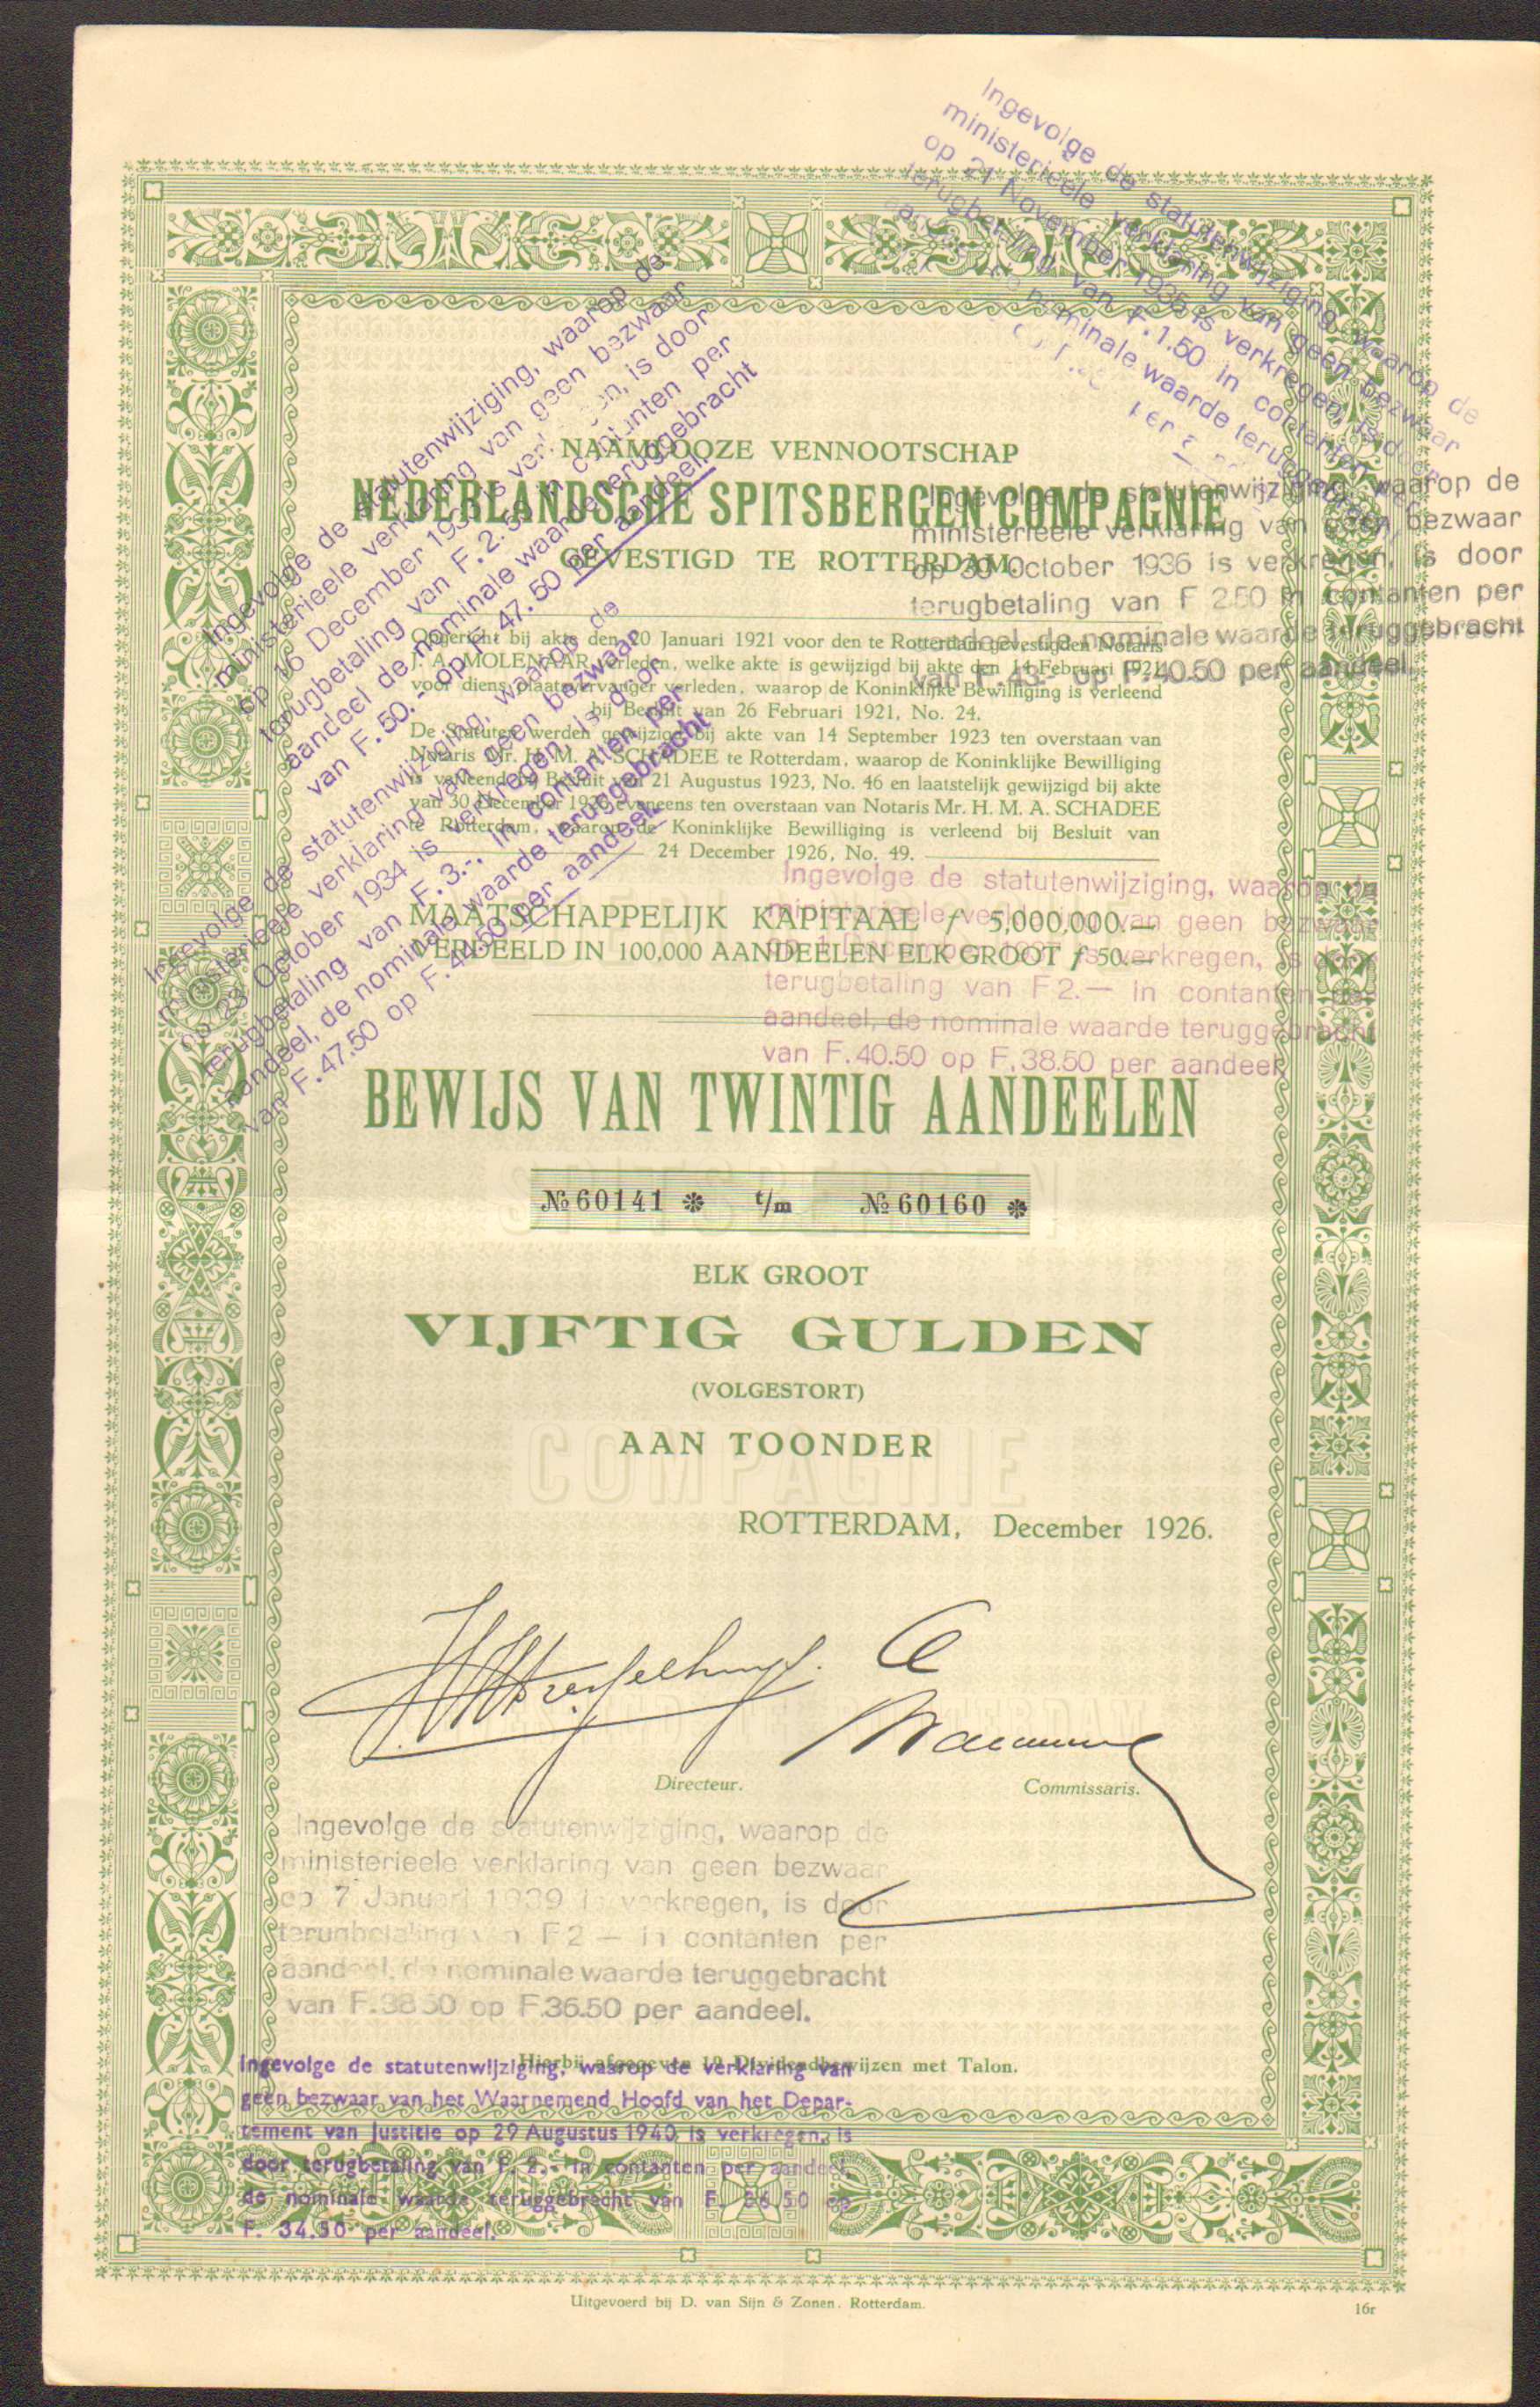 Ingevolge de statutenwijziging, waarop de
ministerieele verklaring van geen bezwaar
op 21 November 1935 is verkregen, is door
terugbetaling van F.1.50 in contanten
nominale waarde
Ingevolge de statutenwijziging, waarop de
ministerieele verklaring van geen bezwaar
op 16 December is door
terugbetaling van F. 2.50 in contanten per
aandeel de nominale waarde teruggebracht
van F. 50.- op F. 47.50 per aandeel.
NAAMLOOZE VENNOOTSCHAP
NEDERLANDSCHE SPITSBERGEN COMPAGNIE
GEVESTIGD TE ROTTERDAM.
Ingevolge de statutenwijziging, waarop de
ministerieele verklaring van geen bezwaar
op 30 October 1936 is verkregen, is door
terugbetaling van F 2.50 in contanten per
aandeel de nominale waarde teruggebracht
van F.43.- op F.40.50 per aandeel.
Opgericht bij akte den 20 Januari 1921 voor den te Rotterdam gevestigden Notaris
J. A. MOLENAAR verleden, welke akte is gewijzigd bij akte den 14 Februari 1921
voor diens plaatsvervanger verleden, waarop de Koninklijke Bewilliging is verleend
bij Besluit van 26 Februari 1921, No. 24.
De Statuten werden gewijzigd bij akte van 14 September 1923 ten overstaan van
Notaris Mr. H. M. A. SCHADEE te Rotterdam, waarop de Koninklijke Bewilliging
is verleend bij Besluit van 21 Augustus 1923, No. 46 en laatstelijk gewijzigd bij akte
van 30 December 1926 eveneens ten overstaan van Notaris Mr. H. M. A. SCHADEE
te Rotterdam, waarop de Koninklijke Bewilliging is verleend bij Besluit van
24 December 1926, No. 49.
Ingevolge de statutenwijziging, waarop de
ministerieele verklaring van geen bezwaar
op 23 October 1934 is verkregen, is door
terugbetaling van F. 3.-. in contanten per
aandeel, de nominale waarde teruggebracht
van F.47.50 op F. 44.50 per aandeel.
Ingevolge de statutenwijziging, waarop de
ministerieele verklaring van geen bezwaar
is verkregen, is door
terugbetaling van F 2.— in contanten per
aandeel, de nominale waarde teruggebracht
van F.40.50 op F.38.50 per aandeel
MAATSCHAPPELIJK KAPITAAL ƒ 5,000,000.—
VERDEELD IN 100,000 AANDEELEN ELK GROOT ƒ 50.—
BEWIJS VAN TWINTIG AANDEELEN
SPITSBERGEN
№ 60141 * t/m № 60160 *
ELK GROOT
VIJFTIG GULDEN
(VOLGESTORT)
COMPAGNIE
AAN TOONDER
ROTTERDAM, December 1926.
Directeur.
Commissaris.
Ingevolge de statutenwijziging, waarop de
ministerieele verklaring van geen bezwaar
op 7 Januari 1939 is verkregen, is door
terugbetaling van F 2 — in contanten per
aandeel, de nominale waarde teruggebracht
van F.38.50 op F.36.50 per aandeel.
Hierbij afgegeven Dividendbewijzen met Talon.
Ingevolge de statutenwijziging, waarop de verklaring van
geen bezwaar van het Waarnemend Hoofd van het Depar-
tement van Justitie op 29 Augustus 1940 is verkregen, is
door terugbetaling van F. 2.- in contanten per aandeel,
de nominale waarde teruggebracht van F. 36.50 op
F. 34.50 per aandeel.
Uitgevoerd bij D. van Sijn & Zonen. Rotterdam.
16r